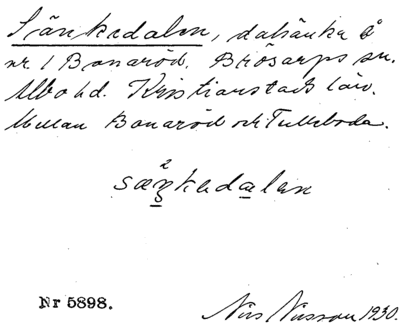 Sänkedalen, dalsänka å
nr 1 Bonaröd. Brösarps sn.
Albo hd. Kristianstads län.
Mellan Bonaröd och Tulleboda.
2
sæŋkedalen
Nr 5898.
Nils Nilsson 1930.